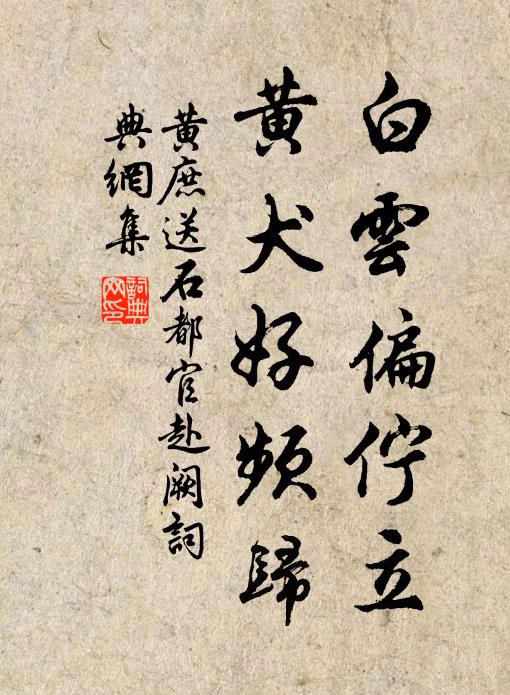 白雲偏佇立
黃犬好頻歸
黃庶送石都官赴闕詞
典網集
詞典網印